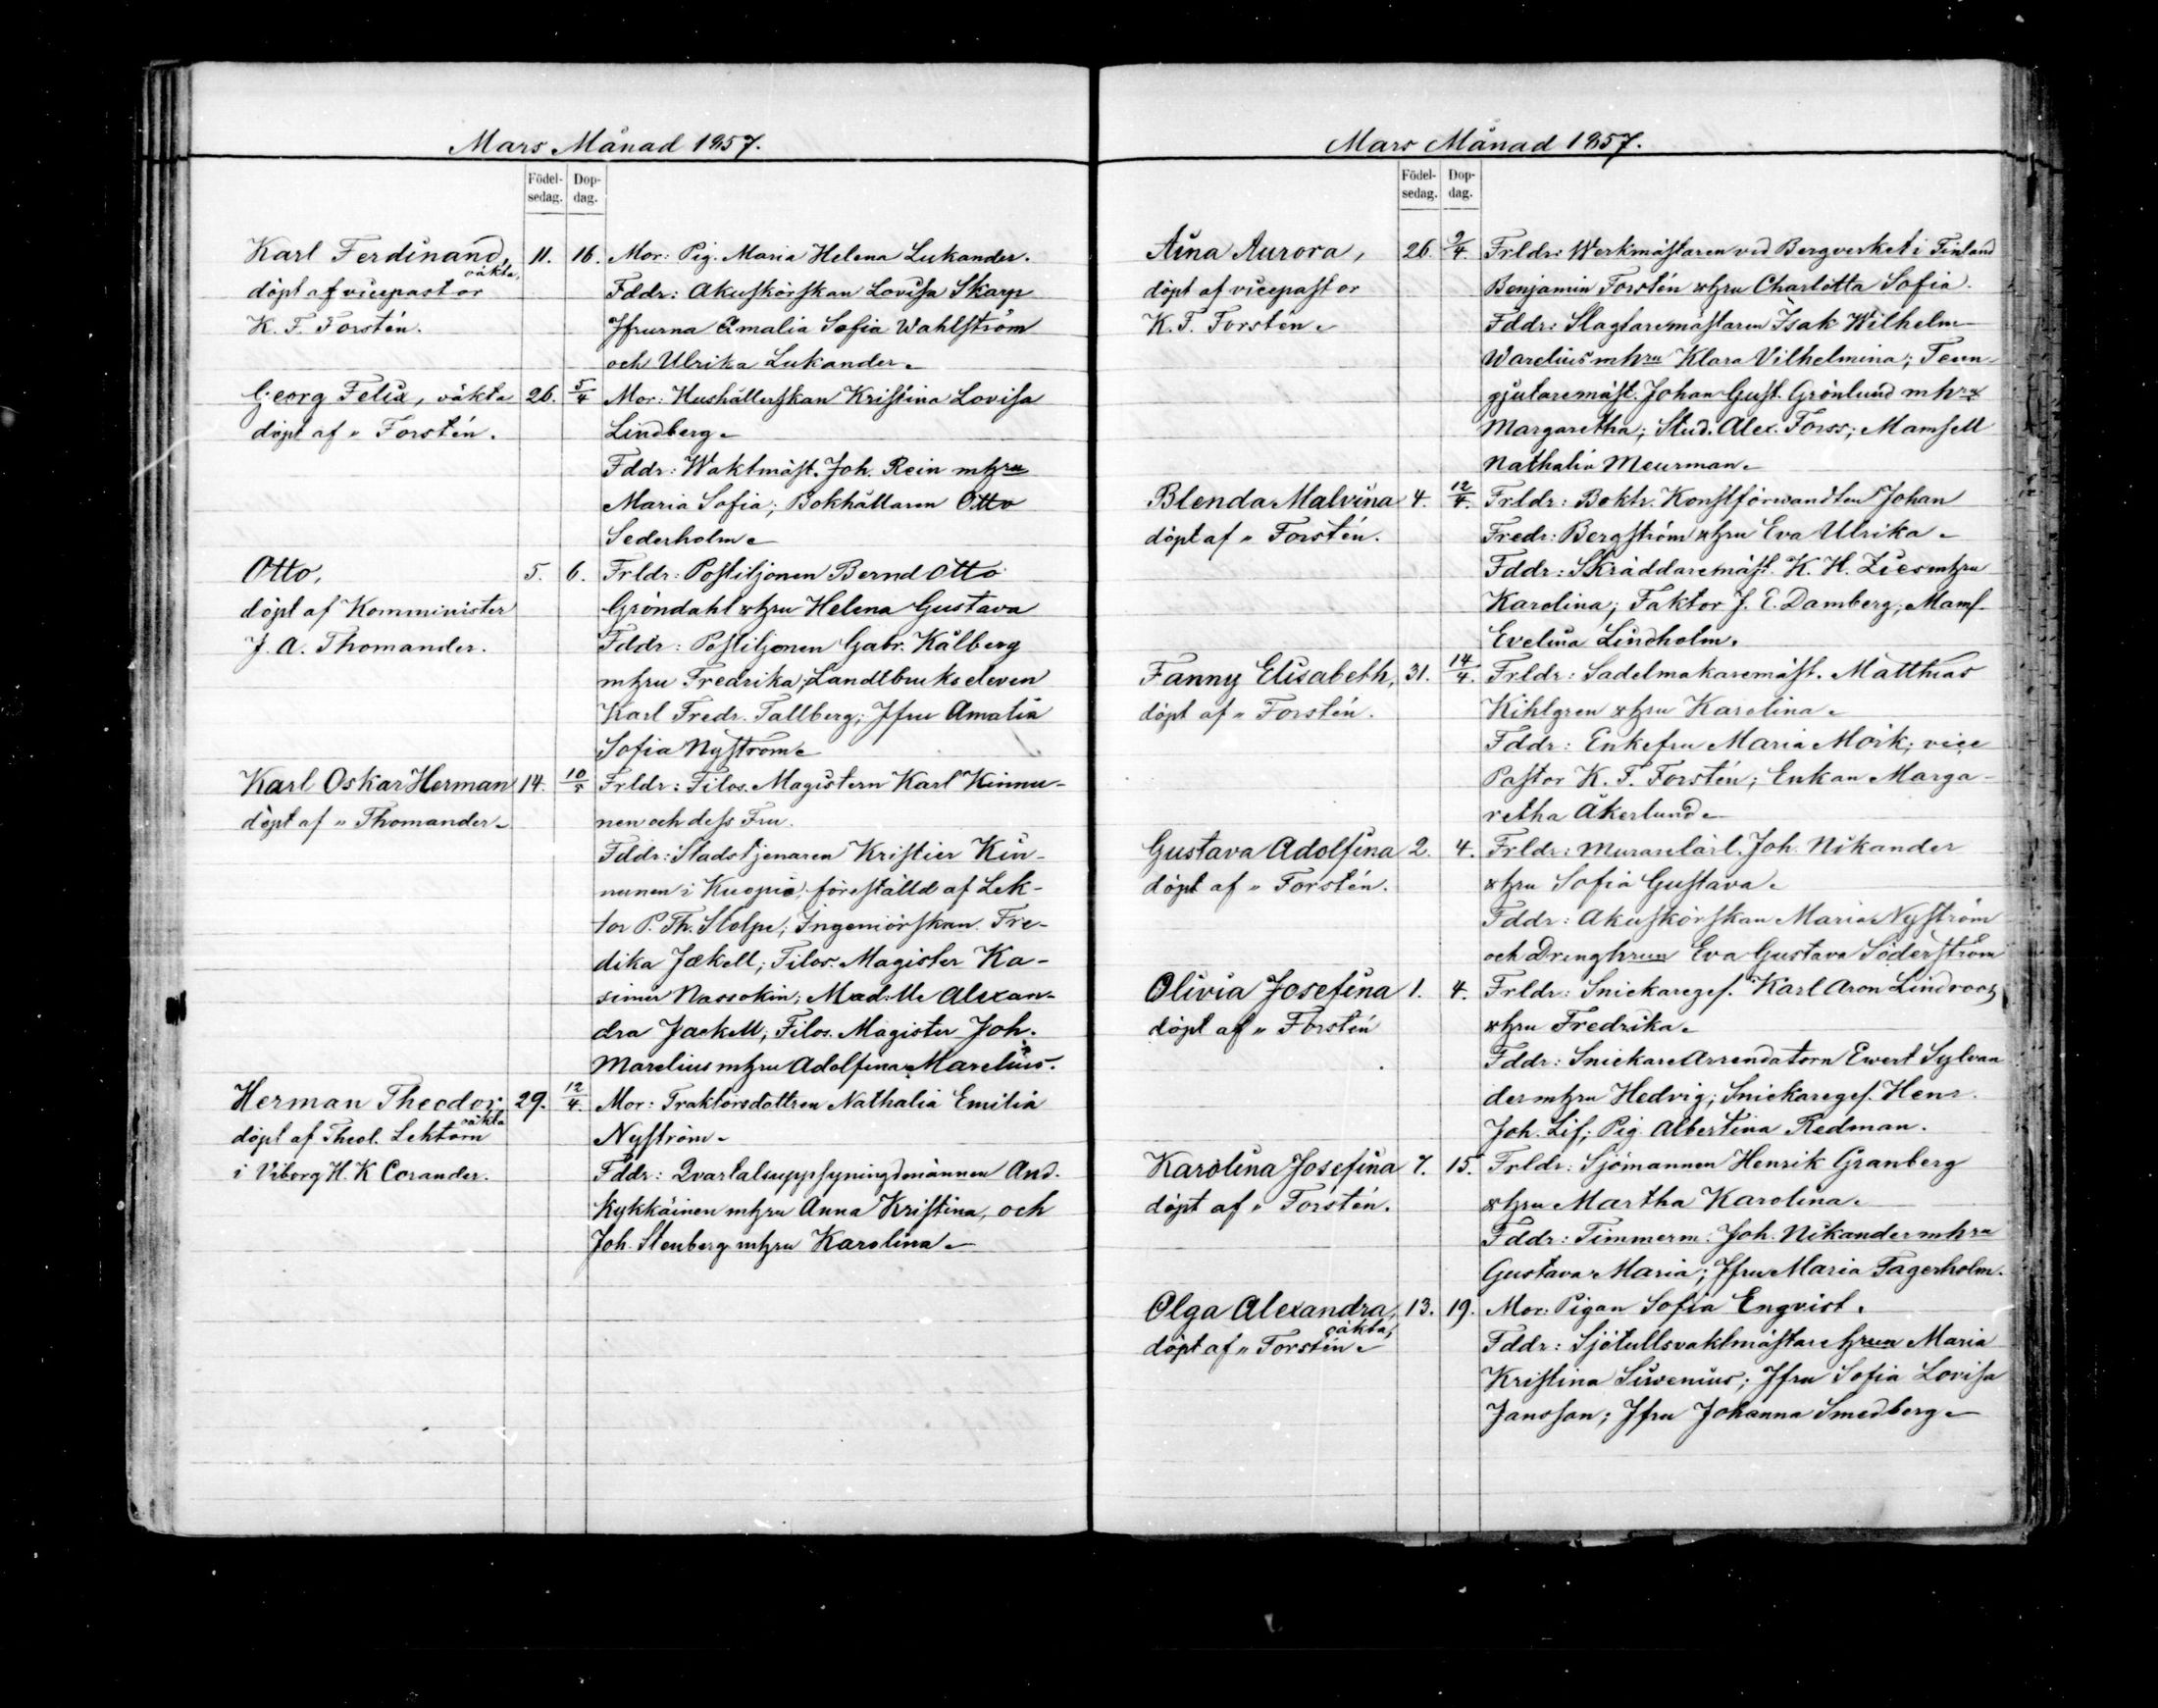 Mars Månad 1857.
Födel-
sedag.
Dop-
dag.
Karl Ferdinand, 11. 16. Mor: Pig. Maria Helena Lukander.
oäkta,
döpt af vicepastor Fddr: Akuskörskan Lovisa Skarp
K. F. Forstén. Jfrurna Amalia Sofia Wahlström
och Ulrika Lukander.
Georg Felix, oäkta 26. 5/4 Mor: Hushållerskan Kristina Lovisa
döpt af " Forstén. Lindberg.
Fddr: Waktmäst. Joh. Rein mhru
Maria Sofia; Bokhållaren Otto
Sederholm.
Otto, 5. 6. Frldr: Postiljonen Bernd Otto
döpt af Komminister Gröndahl &hru Helena Gustava
J. A. Thomander. Fddr: Postiljonen Gabr. Kålberg
mhru Fredrika; Landtbrukseleven
Karl Fredr. Tallberg; Jfru Amalia
Sofia Nyström.
Karl Oskar Herman 14. 10/5 Frldr: Filos. Magistern Karl Kinnu-
döpt af " Thomander. nen och dess Fru.
Fddr: Stadstjenaren Kristier Kin-
nunen i Kuopio, föreställd af Lek-
tor P. Th. Stolpe; Ingeniörskan Fre-
dika Jækell; Filos. Magister Ka-
simir Nassokin; Mad:lle Alexan-
dra Jaekell; Filos. Magister Joh.
Marelius mhru Adolfina Marelius.
Herman Theodor, 29. 12/4. Mor: Traktörsdottren Nathalia Emilia
oäkta
döpt af Theol. Lektorn Nyström.
i Viborg H. K Corander. Fddr: Qvartalsuppsyningsmännen And.
Kykkäinen mhru Anna Kristina, och
Joh. Stenberg mhru Karolina.
Mars Månad 1857.
Födel-
sedag.
Dop-
dag.
Aina Aurora, 26. 9/4. Frldr: Werkmästaren vid Bergverket i Finland
döpt af vicepastor Benjamin Forstén &hru Charlotta Sofia.
K. F. Forstén. Fddr: Slagtaremästaren Isak Wilhelm
Warelius mhru Klara Vilhelmina; Tenn-
gjutaremäst. Johan Gust. Grönlund mhru
Margaretha; Stud. Alex. Forss; Mamsell
Nathalia Meurman.
Blenda Malvina 4. 12/4. Frldr: Boktr. Konstförwandten Johan
döpt af " Forstén. Fredr: Bergström &hru Eva Ulrika.
Fddr: Skräddaremäst. K. H. Zies mhru
Karolina; Faktor J. E. Damberg; Mams.
Evelina Lindholm.
Fanny Elisabeth, 31. 14/4. Frldr: Sadelmakaremäst. Matthias
döpt af " Forstén. Kihlgren &hru Karolina.
Fddr: Enkefru Maria Moik; vice
Pastor K. F. Forstén; Enkan Marga-
retha Åkerlund.
Gustava Adolfina 2. 4. Frldr: Murarelärl. Joh. Nikander
döpt af " Forstén. &hru Sofia Gustava.
Fddr: Akuskörskan Maria Nyström
och Drenghrun Eva Gustava Söderström
Olivia Josefina 1. 4. Frldr: Snickareges. Karl Aron Lindroos
döpt af " Forstén &hru Fredrika.
Fddr: Snickare Arrendatorn Ewert Sylvan
der mhru Hedvig; Snickareges. Henr.
Joh. Lif; Pig. Albertina Redman.
Karolina Josefina 7. 15. Frldr: Sjömannen Henrik Granberg
döpt af " Forstén. &hru Martha Karolina.
Fddr: Timmerm. Joh. Nikander mhru
Gustava Maria; Jfru Maria Fagerholm.
Olga Alexandra, 13. 19. Mor: Pigan Sofia Engvist.
oäkta,
döpt af " Forstén. Fddr: Sjötullsvaktmästarehrun Maria
Kristina Siwenius; Jfru Sofia Lovisa
Jansson; Jfru Johanna Smedberg.